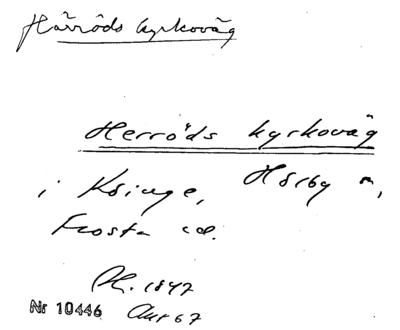 Härröds kyrkoväg
Herröds kyrkoväg
i Ksinge, Hörby n,
Frosta
1847
Nr 10446 67